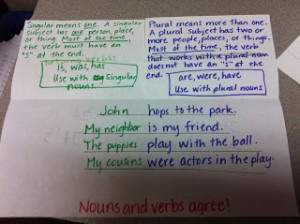 Singular means one. A singular
subject has one person, place,
or thing. Most of the time,
the verb must have an
"s" at the end.
Is, was, has
Use with Singular
nouns.
Plural means more than one.
A plural subject has two or
more people, places, or things.
Most of the time, the verb
that works with a plural noun
does not have an "s" at the
end.
are, were, have
Use with plural nouns
John hops to the park.
My neighbor is my friend.
The puppies play with the ball.
My cousins were actors in the play.
Nouns and verbs agree!